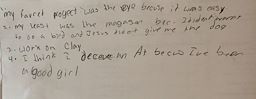 my favret project was the eye becuse it was easy
2. my least was the magnaser bec. I dident
to do a bird and Jesus did not give me the dog
3. work on Clay
4. I think I deceve an A+ becus I've been
a good girl